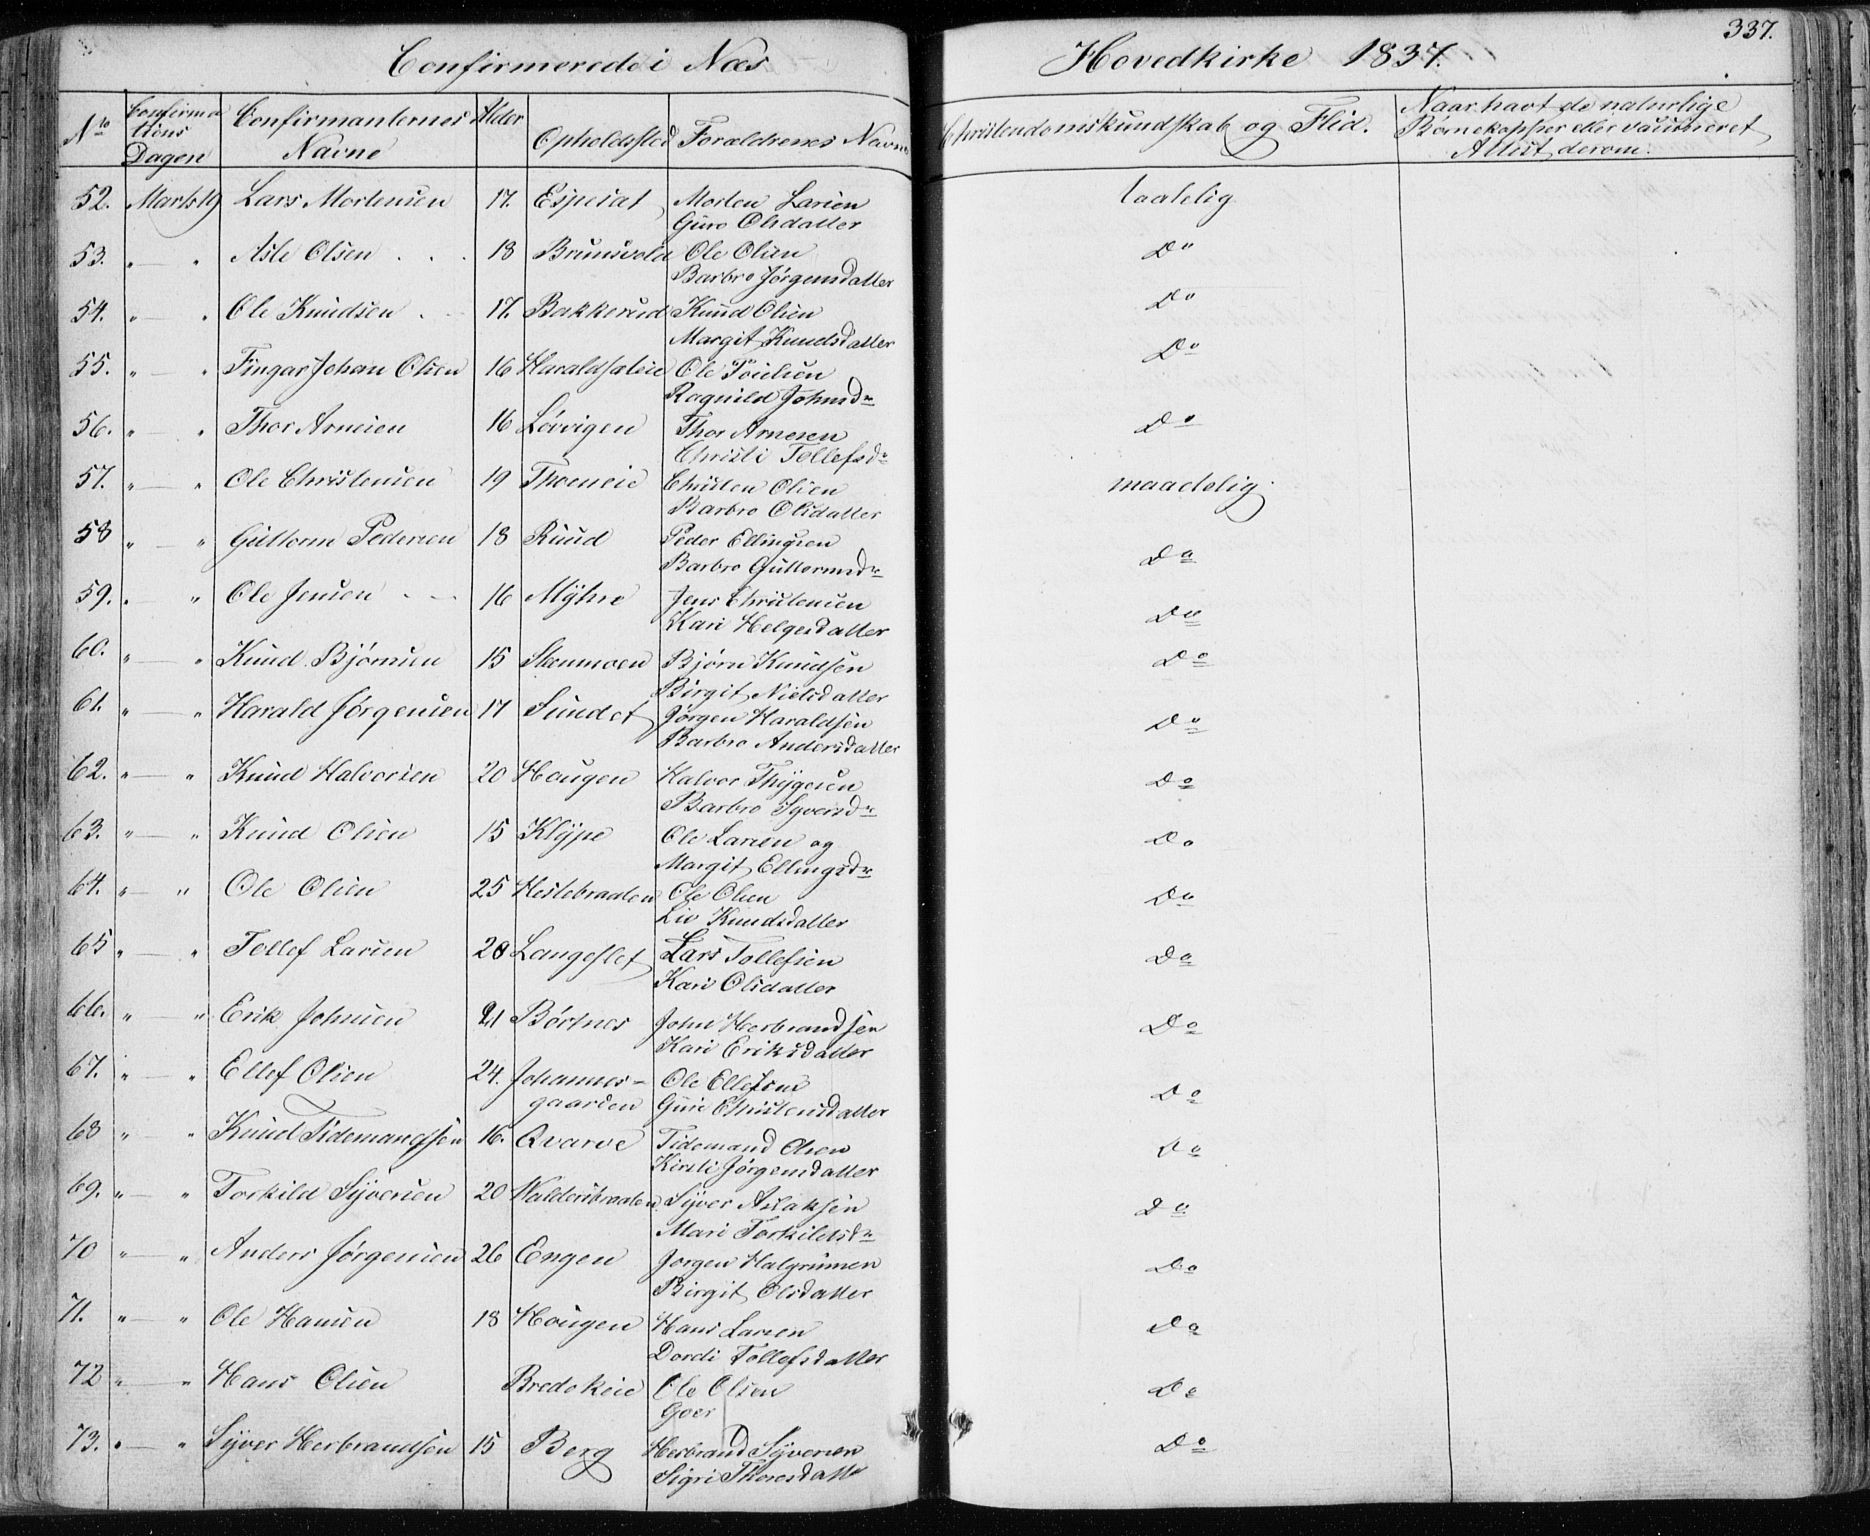 337.
Confirmerede i Næs Hovedkirke 1837
No Confirma-
tions
Dagen
Confirmanternes
Navne
Alder
Opholdssted
Forældrenes Navne
Christendomskundskab og Flid.
Naar havt de naturlige
Børnekopper eller vaccineret
Attest derom.
52. Marts 19 Lars Mortensen 17. Espesat Morten Larsen taalelig
Guro Olsdatter
53. " — " Asle Olsen . . . 18 Brunsvold Ole Olsen Do
Barbro Jørgensdatter
54. " — " Ole Knudsen . - 17. Bakkerud Knud Olsen Do
Margit Knudsdatter
55. " — " Fingar Johan Olsen 16 Haraldsaleie Ole Do
Ragnild Johnsdr
56. " — " Thor Arnesen 16 Løvvigen Thor Arnesen Do
Christi Tollefsdr
57. " — " Ole Christensen 19 Christen Olsen maadelig.
Barbro Olsdatter
58 " — " Guttorm Pedersen 18 Ruud Peder Ellingsen Do
Barbro Guttormsdr
59. " — " Ole Jensen - - 16 Myhre Jens Christensen Do
Kari Helgesdatter
60. " — " Knud Bjørnsen 15 Stenmoen Bjørn Knudsen Do
Birgit Nielsdatter
61. " — " Harald Jørgensen 17 Sundet Jørgen Haraldsen Do
Barbro Andersdatter
62. " — " Knud Halvorsen 20 Hougen Halvor Thygesen Do
Barbro Syversdr
63. " — " Knud Olsen 15 Klype Ole Larsen og Do
Margit Ellingsdr
64. " — " Ole Olsen 25 Heslebraaten Ole Olsen Do
Liv Knudsdatter
65 " — " Tollef Larsen 20 Langeslet Lars Tollefsen Do
Kari Olsdatter
66. " — " Erik Johnsen 21 Børtnes John Herbrandsen Do
Kari Eriksdatter
67. " — " Ellef Olsen 24. Johannes- Ole Ellefsen Do
gaarden Guri Christensdatter
68 " — " Knud Tidemandsen 16. Qvarve Tidemand Olsen Do
Kirsti Jørgensdatter
69. " — " Torkild Syversen 20 Waldersbraaten Syver Aslaksen Do
Mari Torkildsdr
70 " — " Anders Jørgensen 26 Engen Jørgen Halgrimsen Do
Birgit Olsdatter
71. " — " Ole Hansen 18 Hougen Hans Larsen Do
Dordi Tollefsdatter
72 " — " Hans Olsen Bredokeie Ole Olsen Do
Goer
73. " — " Syver Herbrandsen 15 Berg Herbrand Syversen Do
Sigri Thoresdatter